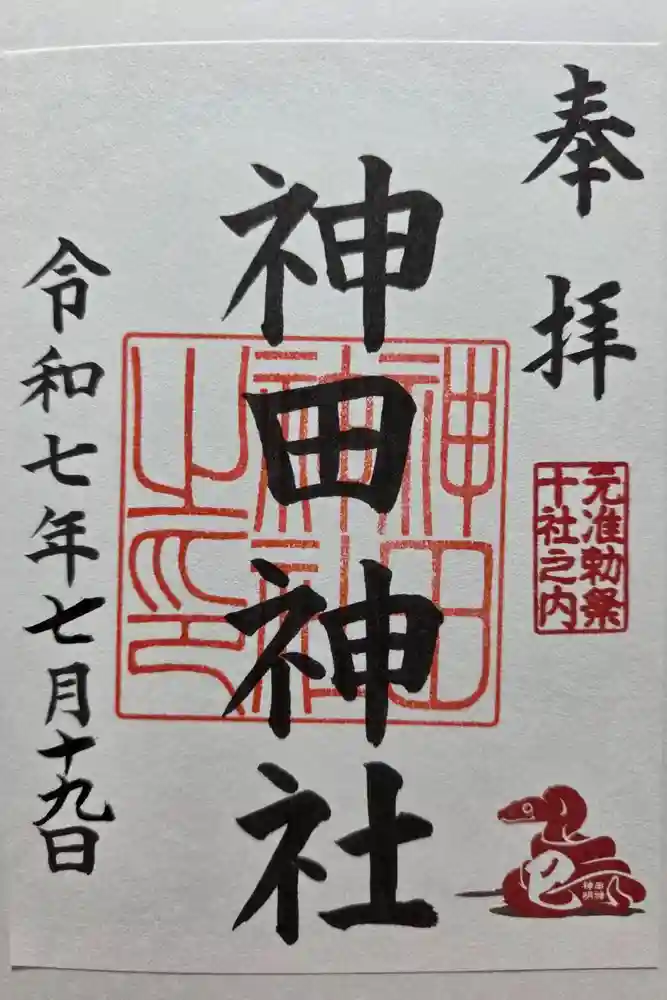 奉拝
元准勅祭
十社之内
神田神社
神田
神社
之印
令和七年七月十九日
巳